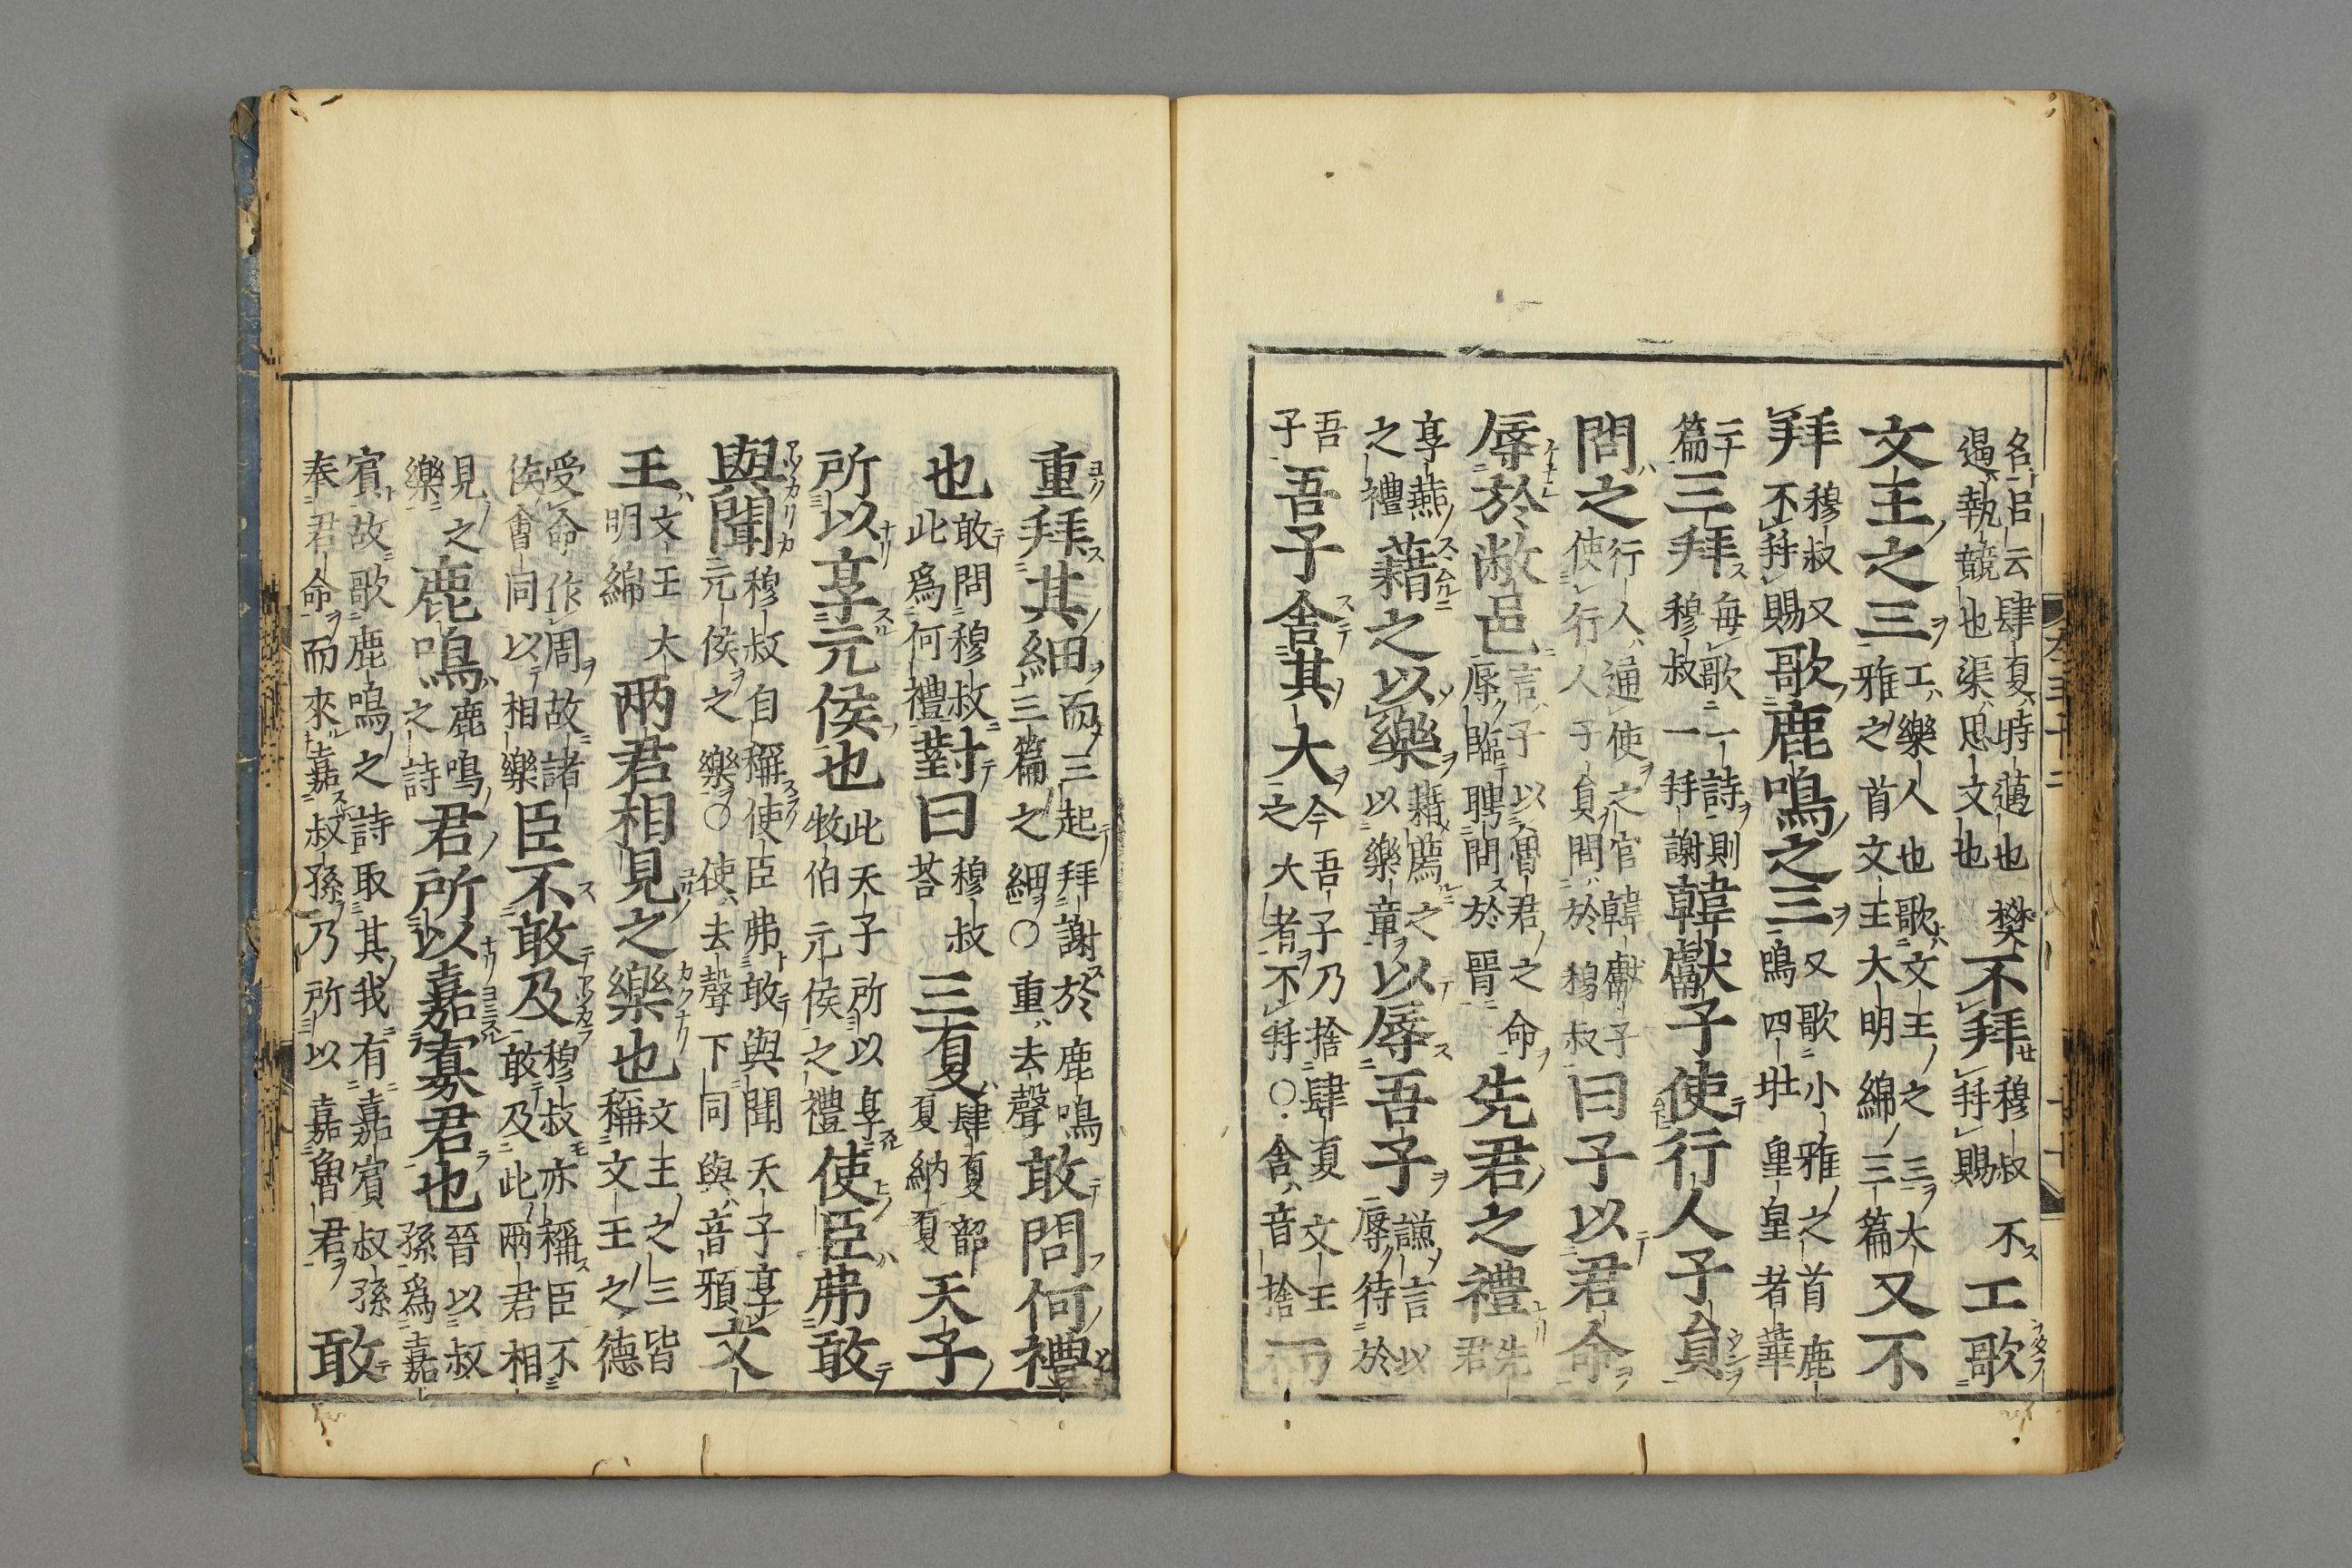 名呂云肆夏時邁也樊
遏執競也渠思文也
不拜
穆叔不
拜賜
工歌
文王之三
工樂人也歌文王之三大
雅之首文王大明綿三篇
又不
拜
穆叔又
不拜賜
歌鹿鳴之三
又歌小雅之首鹿
鳴四牡皇皇者華
三
篇
三拜
每歌一詩則
穆叔一拜謝
韓獻子使行人子員
問之
行人通使之官韓獻子
使行人子員問於穆叔
曰子以君命
辱於敝邑
言子以魯君之命
辱臨聘問於晉
先君之禮
先
君
享燕
之禮
藉之以樂
藉薦之
以樂章
以辱吾子
謙言以
辱待於
吾
子
吾子舍其大
今吾子乃捨肆夏文王
之大者不拜○舍音捨
而
重拜其細
而三起拜謝於鹿鳴
三篇之細○重去聲
敢問何禮
也
敢問穆叔
此為何禮
對曰
穆叔
荅
三夏
肆夏韶
夏納夏
天子
所以享元侯也
此天子所以享
牧伯元侯之禮
使臣弗敢
與聞
穆叔自稱使臣弗敢與聞天子享
元侯之樂○使去聲下同與音預
文
王
文王大
明綿
兩君相見之樂也
文王之三皆
稱文王之德
受命作周故諸
侯會同以相樂
臣不敢及
穆叔亦稱臣不
敢及此兩君相
見之
樂
鹿鳴
鹿鳴
之詩
君所以嘉寡君也
晉以叔
孫為嘉
賓故歌鹿鳴之詩取其我有嘉賓叔孫
奉君命而來嘉叔孫乃所以嘉魯君
敢